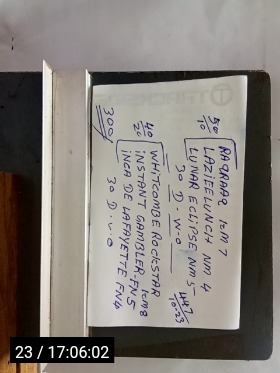 RAQRAAQ 12M 7
LAZIEELUNCH NM 4
LUNAR ECLIPSE NM 5
30 D-W-O
50
10
447
10-23
WHITCOMBE ROCKSTAR 12M8
INSTANT GAMBLER-FN 5
INCA DE LAFAYETTE FN4
30 D-W-O
40
20
300
23 / 17:06:02